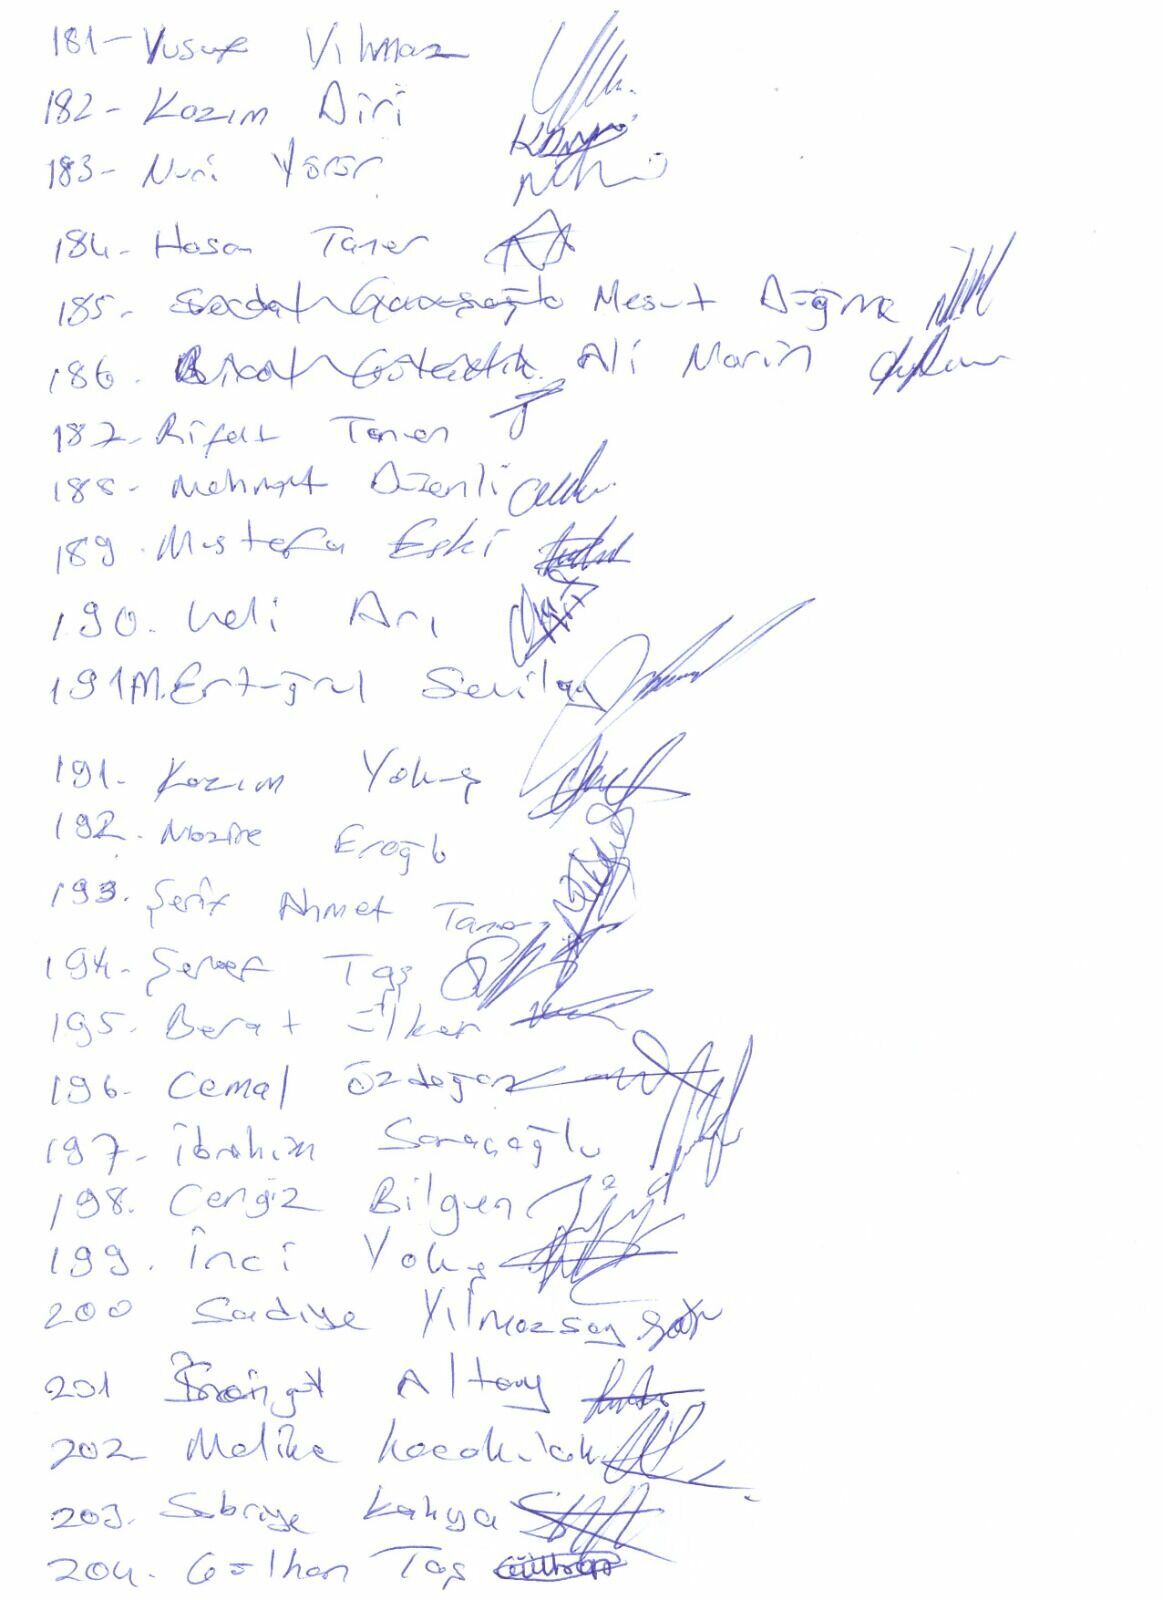 181- Yusuf Yılmaz
182- Kazım Diri
183- Nuri
184- Hasan Taner
185- Mesut Düğme
186- Ali Narin
187- Rifat Taner
188- Mehmet Düzenli
189. Mustafa Eski
190. Veli Arı
191 M. Ertuğrul Sevilay
191- Kazım Yokuş
192- Nazire Eroğlu
193. Şerif Ahmet Taner
194- Şeref Taş
195. Berat Ülker
196- Cemal Özdoğan
197- İbrahim Saraçoğlu
198. Cengiz Bilgen
199. İnci Yokuş
200 Sadiye Yılmazsoy
201 Altay
202 Melike Kocakulak
203. Sabriye Kahya
204. Gülhan Taş